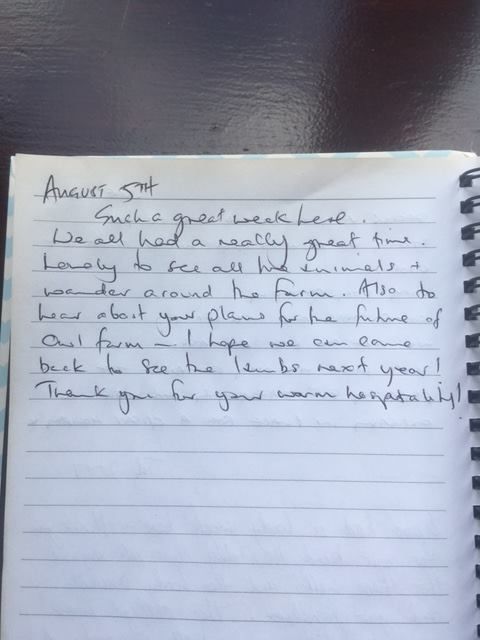 AUGUST 5TH
Such a great week here.
We all had a really great time.
Lovely to see all the animals +
wander around the farm. Also to
hear about your plans for the future of
Owl farm - I hope we can come
back to see the lambs next year!
Thank you for your warm hospatality!